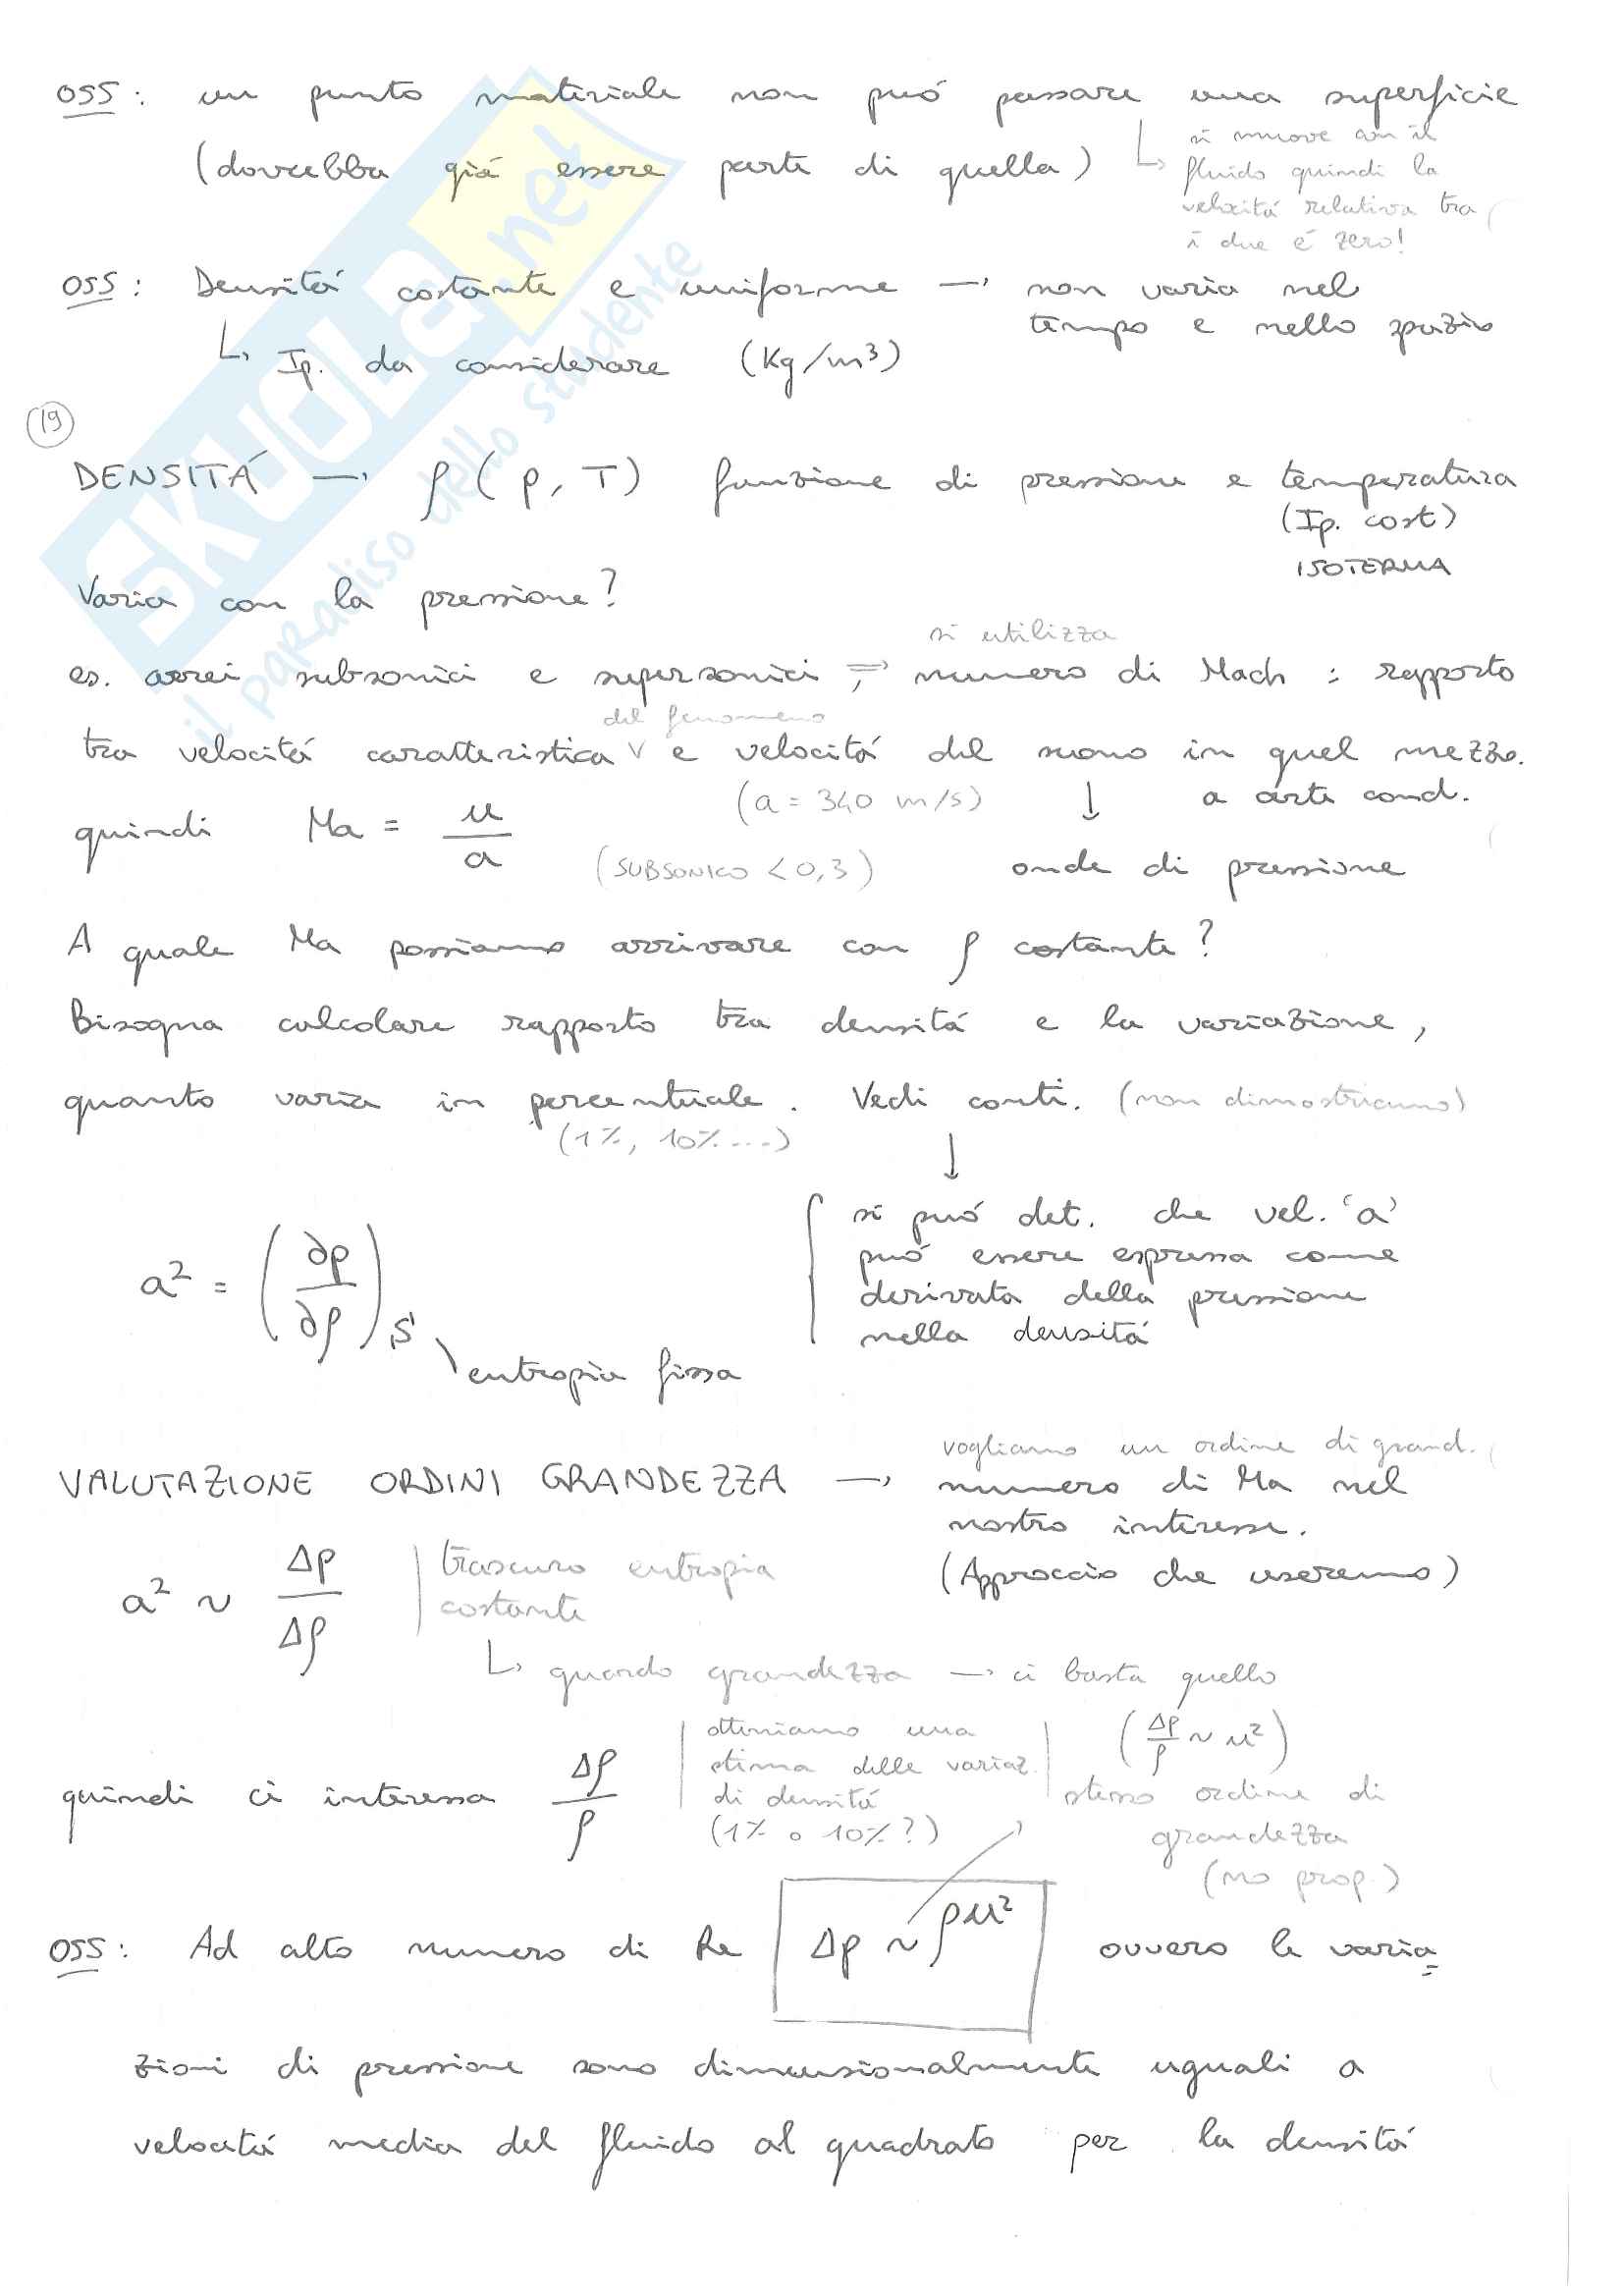 OSS: un punto materiale non può passare una superficie
(dovrebba già essere parte di quella)
↳ si muove con il
fluido quindi la
velocità relativa tra
i due è zero!
OSS: Densità costante e uniforme → non varia nel
tempo e nello spazio
↳ Ip. da considerare (Kg/m³)
19
DENSITÁ → ρ(p,T) funzione di pressione e temperatura
(Ip. cost)
ISOTERMA
Varia con la pressione?
si utilizza
es. aerei subsonici e supersonici ⇒, numero di Mach : rapporto
del fenomeno
tra velocità caratteristica v e velocità del suono in quel mezzo.
(a = 340 m/s) ↓ a certe cond.
quindi Ma = u/a
(SUBSONICO < 0,3) onde di pressione
A quale Ma possiamo arrivare con ρ costante?
Bisogna calcolare rapporto tra densità e la variazione,
quanto varia in percentuale. Vedi conti. (non dimostriamo)
(1%, 10%...) ↓
a² = (∂p/∂ρ)s
entropia fissa
si può det. che vel. 'a'
può essere espressa come
derivata della pressione
nella densità
vogliamo un ordine di grand.
VALUTAZIONE ORDINI GRANDEZZA → numero di Ma nel
nostro interesse.
(Approccio che useremo)
a² ~ Δp/Δρ | trascuro entropia
costante
↳ guardo grandezza → ci basta quello
quindi ci interessa Δρ/ρ
otteniamo una
stima delle variaz.
di densità
(1% o 10%?)
(Δp/ρ ~ u²)
stesso ordine di
grandezza
(no prop.)
OSS: Ad alto numero di Re Δp ~ ρu² ovvero le varia=
zioni di pressione sono dimensionalmente uguali a
velocità media del fluido al quadrato per la densità
SKUOLA.net
il paradiso dello studente